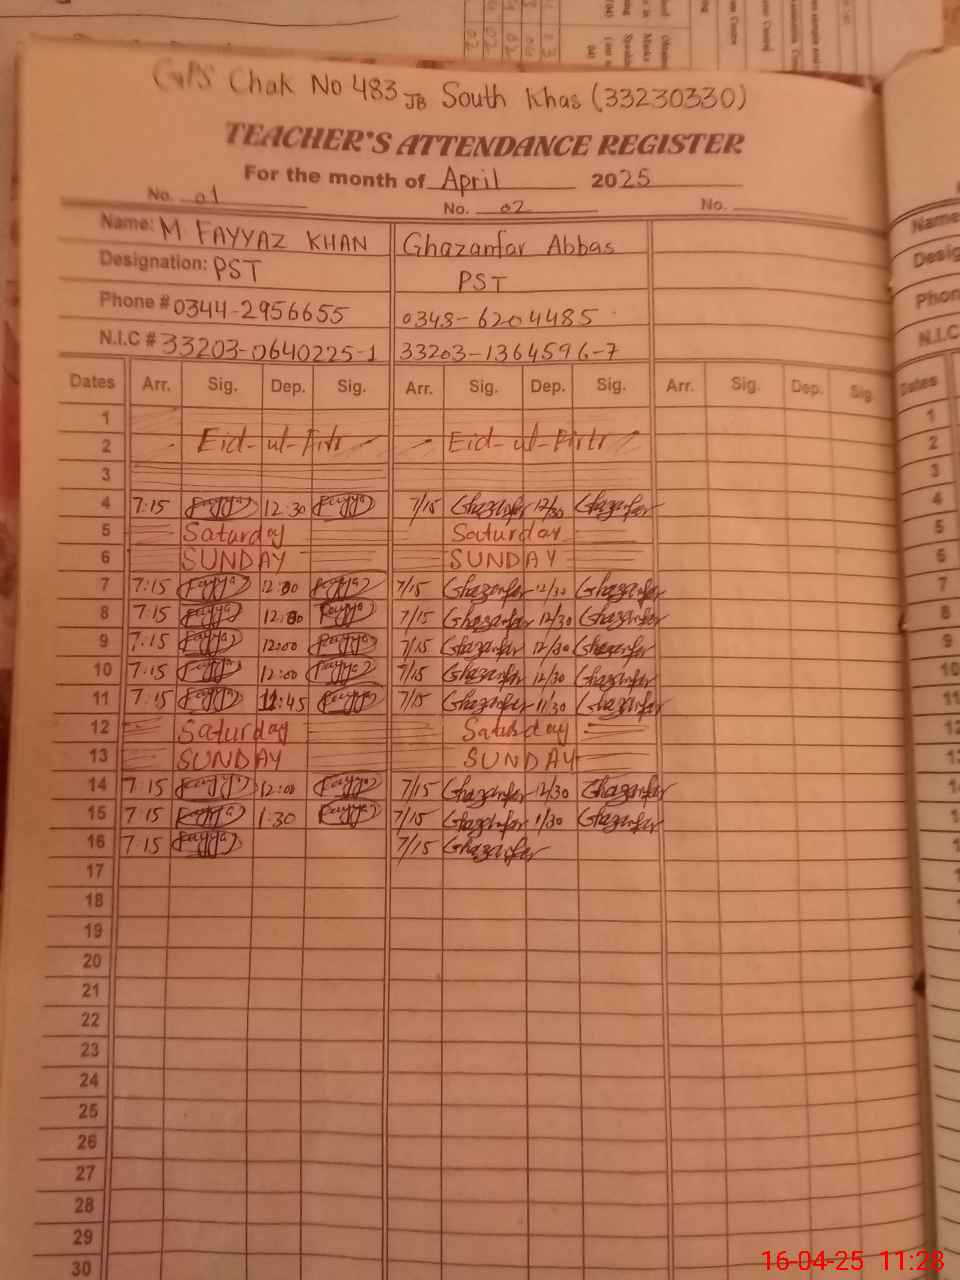 GPS Chak No 483 JB South Khas (33230330)
TEACHER'S ATTENDANCE REGISTER
For the month of April 2025
No. 01 No. 02 No.
Name: M FAYYAZ KHAN Ghazanfar Abbas
Designation: PST PST
Phone # 0344-2956655 0348-6204485
N.I.C # 33203-0640225-1 33203-1364596-7
Dates Arr. Sig. Dep. Sig. Arr. Sig. Dep. Sig. Arr. Sig. Dep. Sig.
1
2 Eid-ul-Fitr Eid-ul-Firtr
3
4 7:15 Fayyaz 12:30 Fayyaz 7/15 Ghazanfar 12/30 Ghazanfar
5 Saturday Saturday
6 SUNDAY SUNDAY
7 7:15 Fayyaz 12:00 Fayyaz 7/15 Ghazanfar 12/30 Ghazanfar
8 7:15 Fayyaz 12:00 Fayyaz 7/15 Ghazanfar 12/30 Ghazanfar
9 7:15 Fayyaz 12:00 Fayyaz 7/15 Ghazanfar 12/30 Ghazanfar
10 7:15 Fayyaz 12:00 Fayyaz 7/15 Ghazanfar 12/30 Ghazanfar
11 7:15 Fayyaz 11:45 Fayyaz 7/15 Ghazanfar 11/30 Ghazanfar
12 Saturday Saturday
13 SUNDAY SUNDAY
14 7:15 Fayyaz 12:00 Fayyaz 7/15 Ghazanfar 12/30 Ghazanfar
15 7:15 Fayyaz 1:30 Fayyaz 7/15 Ghazanfar 1/30 Ghazanfar
16 7:15 Fayyaz 7/15 Ghazanfar
17
18
19
20
21
22
23
24
25
26
27
28
29
30
16-04-25 11:28